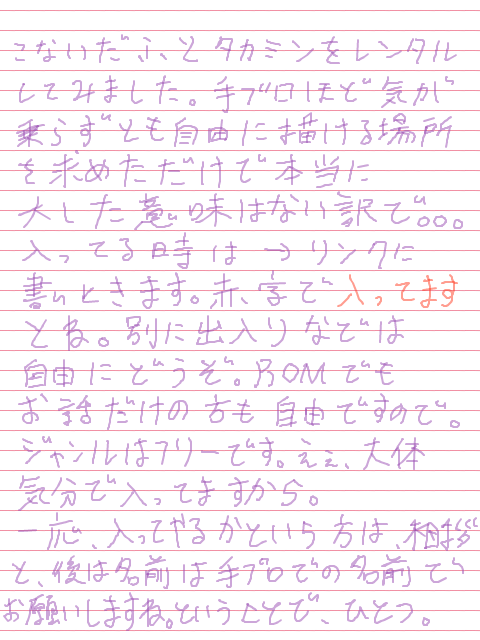 こないだふとタカミンをレンタル
してみました。手ブロほど気が
乗らずとも自由に描ける場所
を求めただけで本当に
大した意味はない訳で。。。
入ってる時は→リンクに
書いときます。赤字で入ってます
とね。別に出入りなどは
自由にどうぞ。ROMでも
お話だけの方も自由ですので。
ジャンルはフリーです。ええ、大体
気分で入ってますから。
一応、入ってやるかという方は、相拶
と、後は名前は手ブロでの名前で
お願いしますね。ということで、ひとつ。